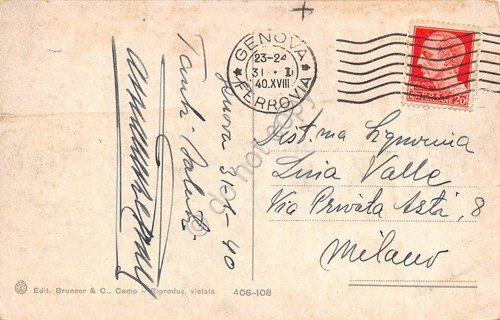 GENOVA
23-24
31 · I
40.XVIII
FERROVIA
20
Genova 31-1-40
Tanti Saluti
Dist.ma Signorina
Lina Valle
Via Privata Asti, 8
Milano
do not copy
Edit. Brunner & C., Como - Riproduz. vietata
406-108